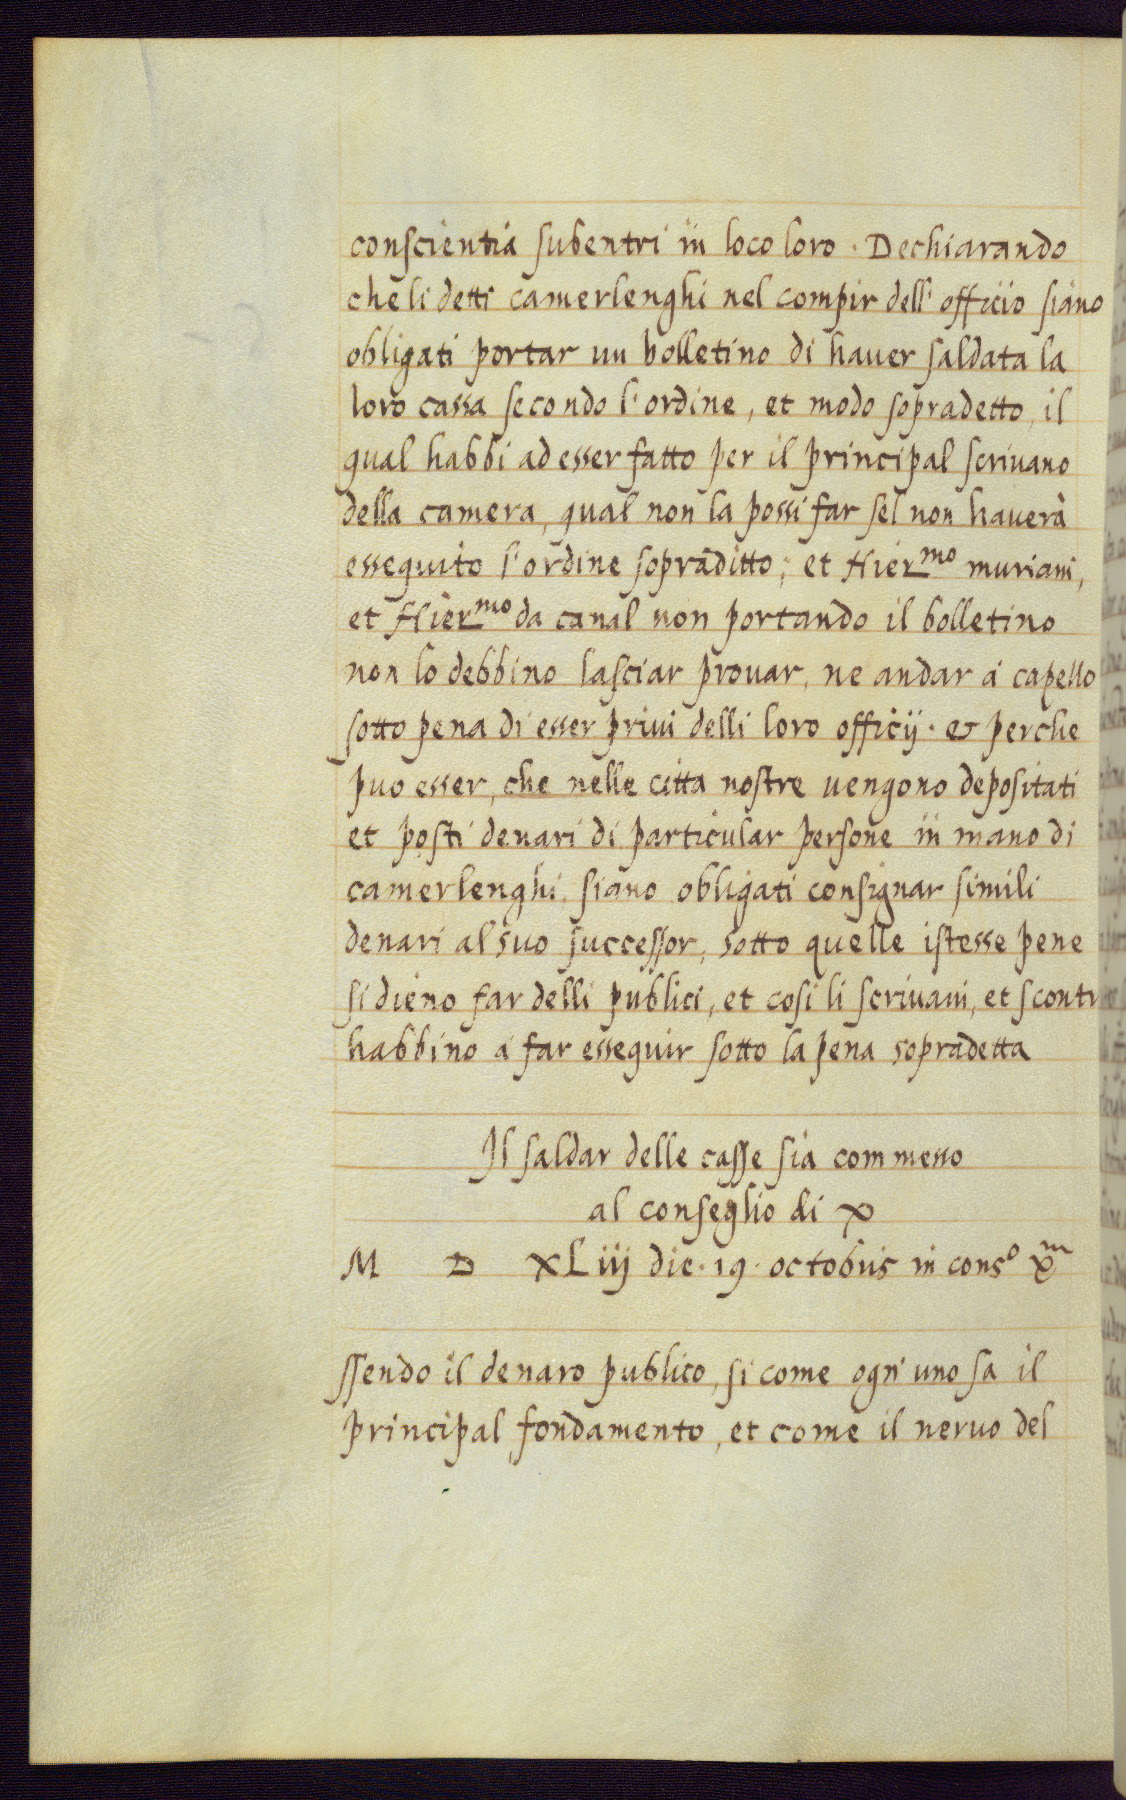 conscientia subentri in loco loro · Dechiarando
che li detti camerlenghi nel compir dell' officio siano
obligati portar un bolletino di hauer saldata la
loro cassa secondo l'ordine, et modo sopradetto, il
qual habbi ad esser fatto per il principal scriuano
della camera, qual non la possi far sel non hauerà
essequito l'ordine sopraditto; et Hier.mo muriani,
et Hier.mo da canal non portando il bolletino
non lo debbino lasciar prouar, ne andar à capello
sotto pena di esser priui delli loro officij · & perche
puo esser, che nelle citta nostre uengono depositati
et posti denari di particular persone in mano di
camerlenghi siano obligati consignar simili
denari al suo successor, sotto quelle istesse pene
si dieno far delli publici, et cosi li scriuani, et scontr
habbino à far essequir sotto la pena sopradetta
Il saldar delle casse sia commesso
al conseglio di X
M D XLiij die · 19 · octobris in cons.o X.m
ssendo il denaro publico, si come ogn' uno sa il
principal fondamento, et come il neruo del